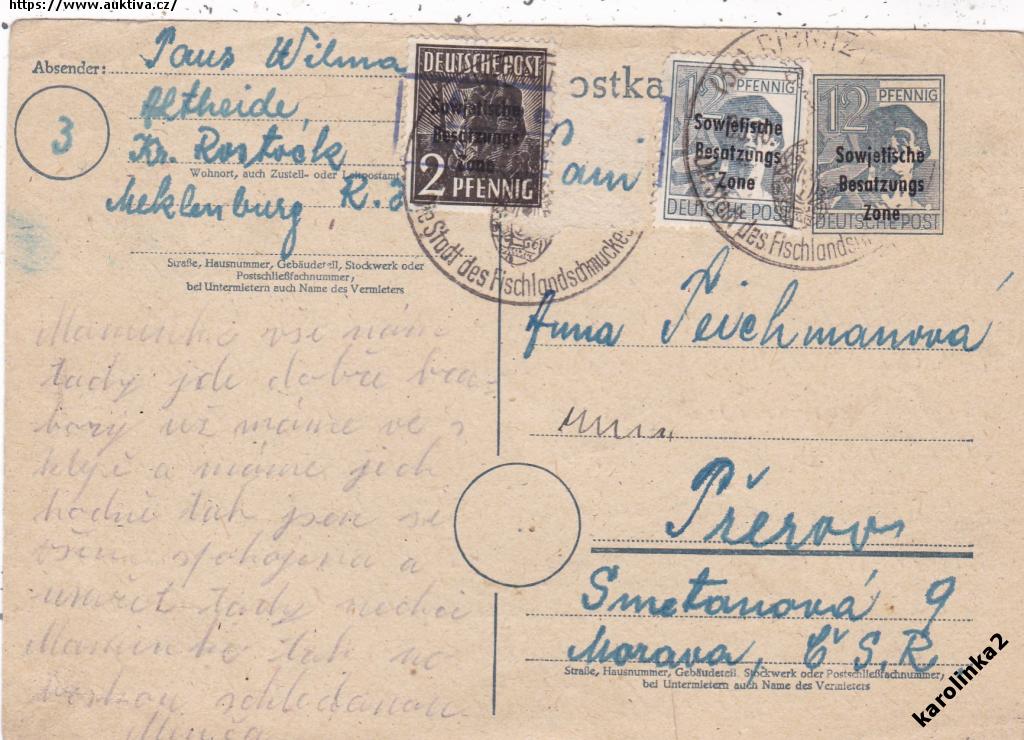 https://www.auktiva.cz/
Absender: Paus Wilma
Altheide,
3
Kr. Rostock
Wohnort, auch Zustell- oder Leitpostamt
Meklenburg R.
Straße, Hausnummer, Gebäudeteil, Stockwerk oder
Postschließfachnummer,
bei Untermietern auch Name des Vermieters
DEUTSCHE POST
Sowjetische
Besatzungs
Zone
2
PFENNIG
ostka
12 PFENNIG
Sowjetische
Besatzungs
Zone
DEUTSCHE POST
12 PFENNIG
Sowjetische
Besatzungs
Zone
DEUTSCHE POST
Stadt des Fischlandschmuckes
des Fischlands
Maminko vše náme
tady jde dobře bra-
bory už máme ve s
klepě a máme jich
hodně tak jsem se
vším spokojena a
umřít tady nechci
Maminko tak na
schledanou
Anna Teichmanová
Přerov
Smetanová 9
Morava, Č S. R.
Straße, Hausnummer, Gebäudeteil, Stockwerk oder Postschließfachnummer,
bei Untermietern auch Name des Vermieters
karolinka2